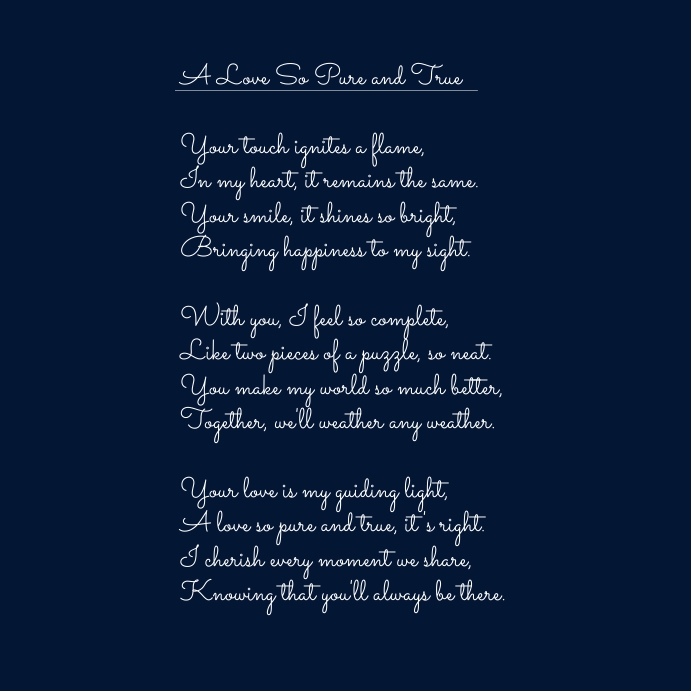 A Love So Pure and True
Your touch ignites a flame,
In my heart, it remains the same.
Your smile, it shines so bright,
Bringing happiness to my sight.
With you, I feel so complete,
Like two pieces of a puzzle, so neat.
You make my world so much better,
Together, we'll weather any weather.
Your love is my guiding light,
A love so pure and true, it's right.
I cherish every moment we share,
Knowing that you'll always be there.